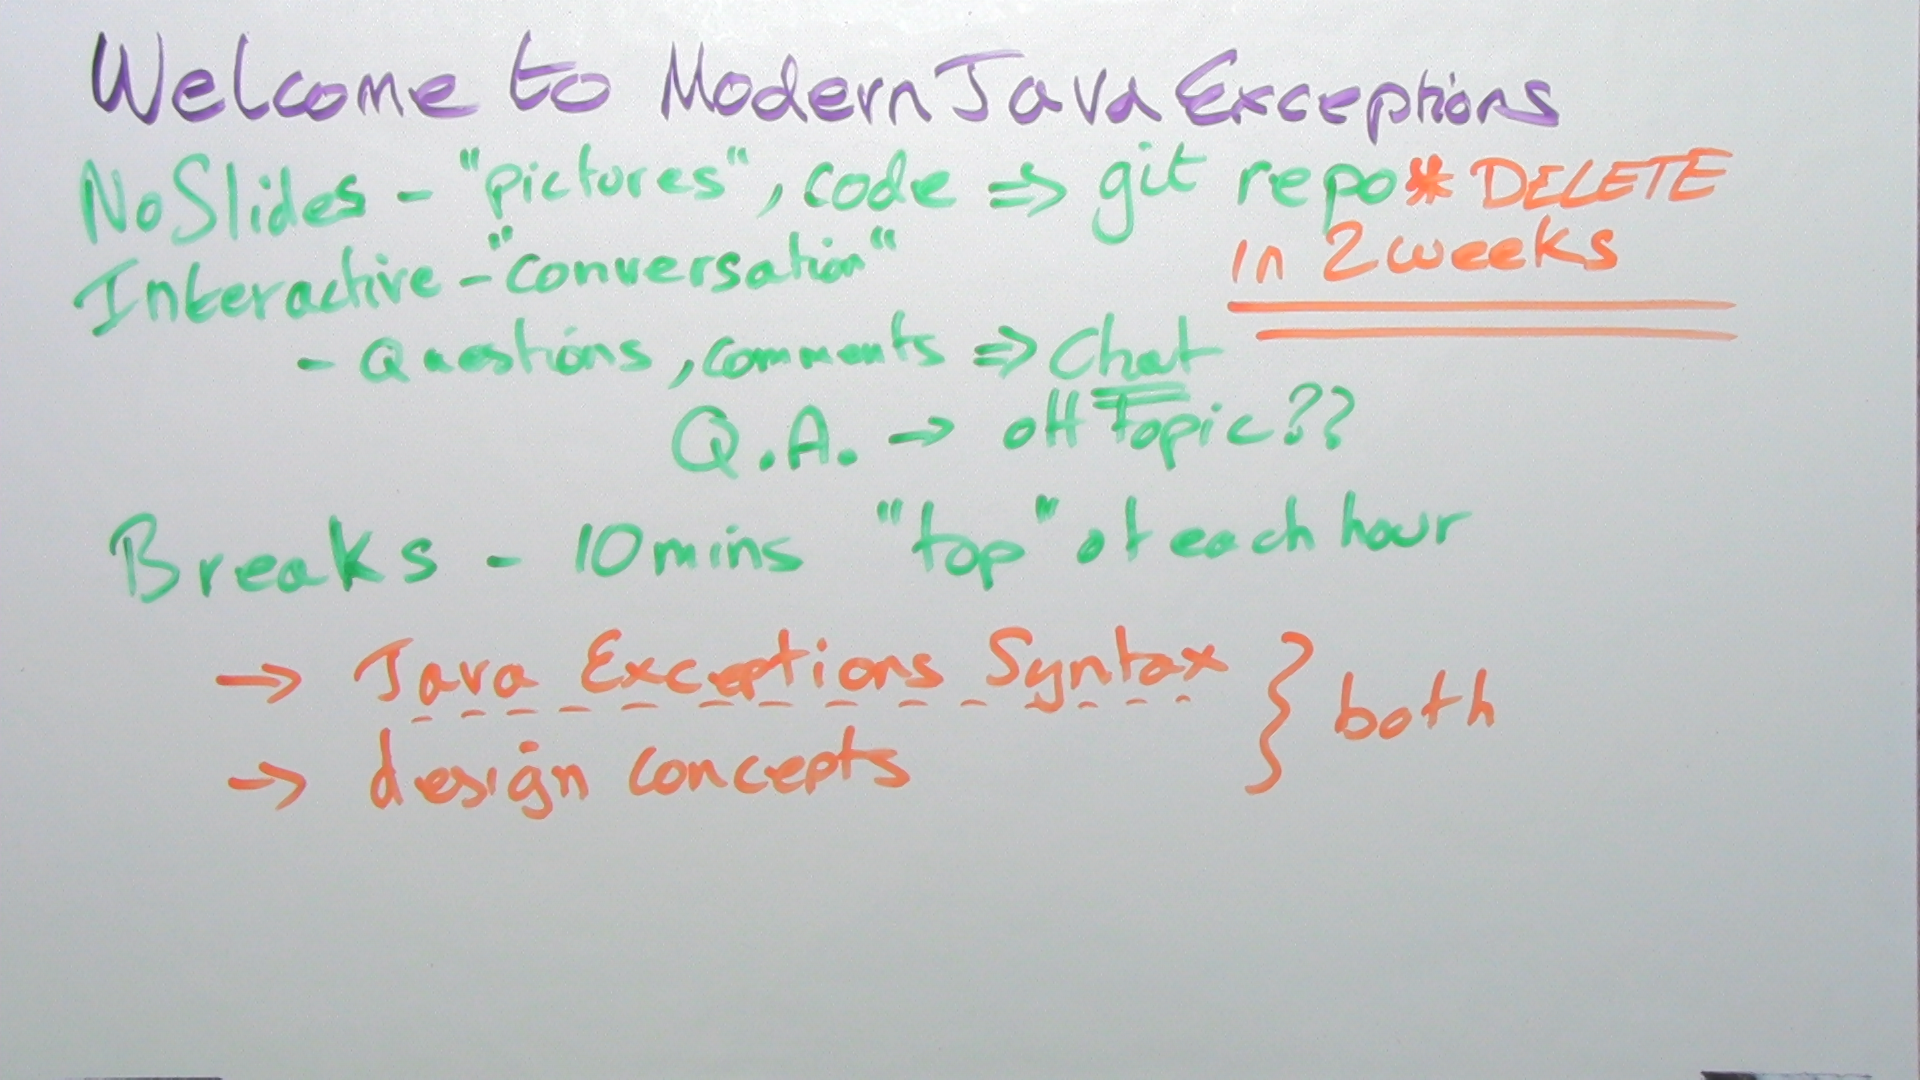 Welcome to Modern Java Exceptions
No Slides - "pictures", code => git repo * DELETE
in 2 weeks
Interactive - "conversation"
- Questions, comments => Chat
Q.A. -> off Topic??
Breaks - 10 mins "top" of each hour
-> Java Exceptions Syntax } both
-> design concepts